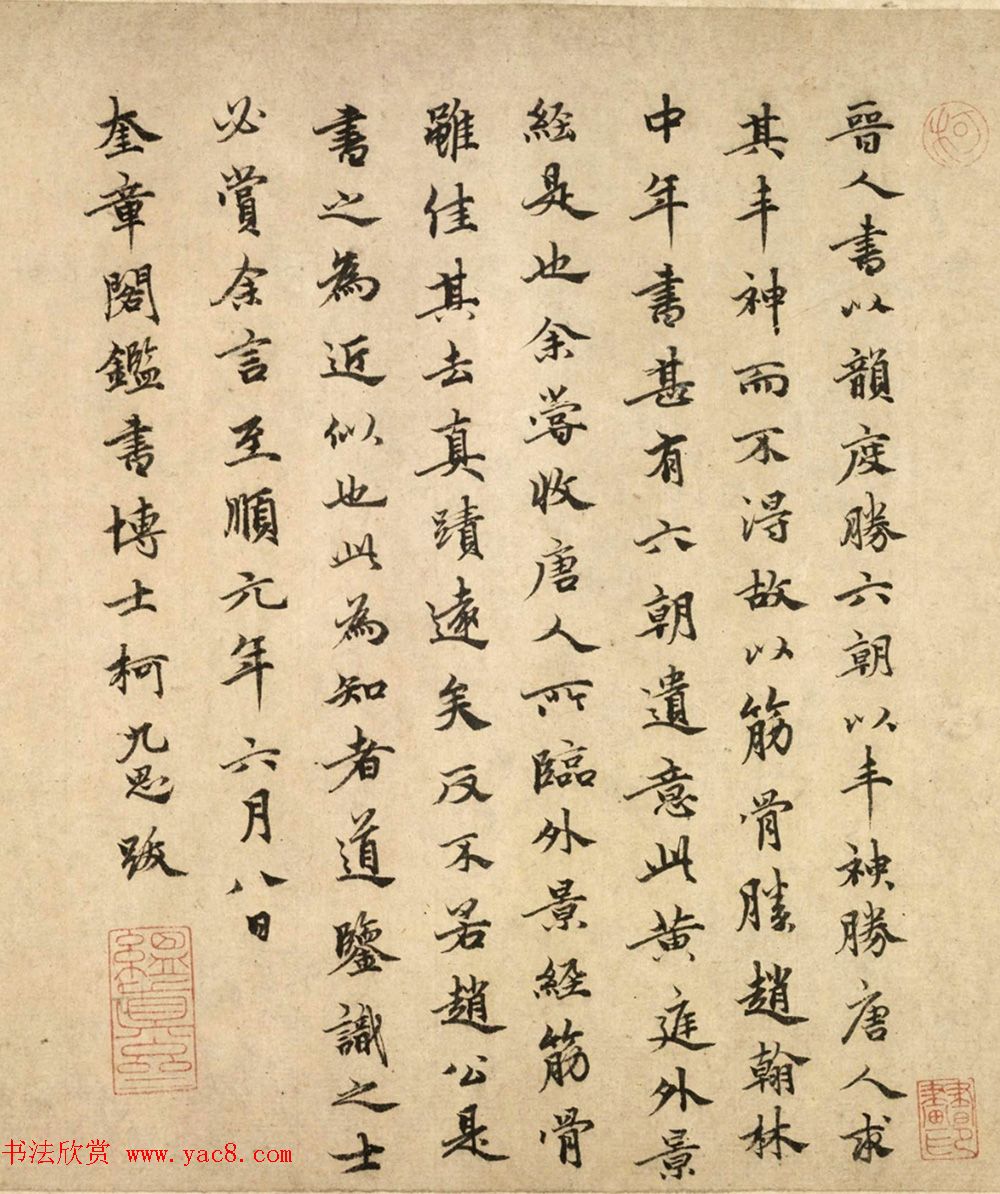 晉人書以韻度勝六朝以丰神勝唐人求
其丰神而不得故以筋骨勝趙翰林
中年書甚有六朝遺意此黄庭外景
經是也余嘗收唐人所臨外景經筋骨
雖佳其去真蹟遠矣反不若趙公是
書之為近似也此為知者道鑒識之士
必賞余言至順元年六月八日
奎章閣鑑書博士柯九思跋
縕真齋
柯
書畫印
书法欣赏 www.yac8.com